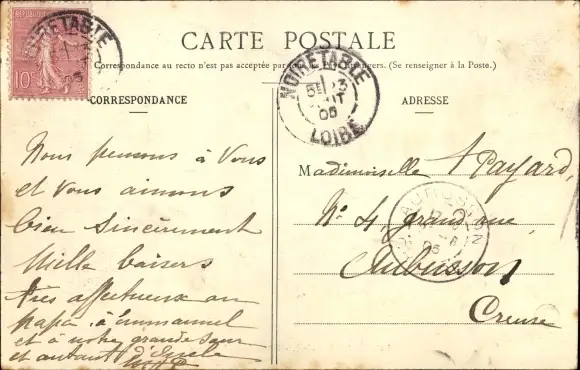 CARTE POSTALE
Correspondance au recto n'est pas acceptée par tous les Pays étrangers. (Se renseigner à la Poste.)
CORRESPONDANCE
ADRESSE
10
NOIRETABLE
NOIRETABLE
5E 23
05
LOIRE
Nous pensons à Vous
et vous aimons
bien sincèrement
Mille baisers
très affectueux au
papa à Emmanuel
et à notre grande sœur
et autant d'
Mademoiselle Payard,
No 4 grand rue
Aubusson
Creuse
AUBUSSON